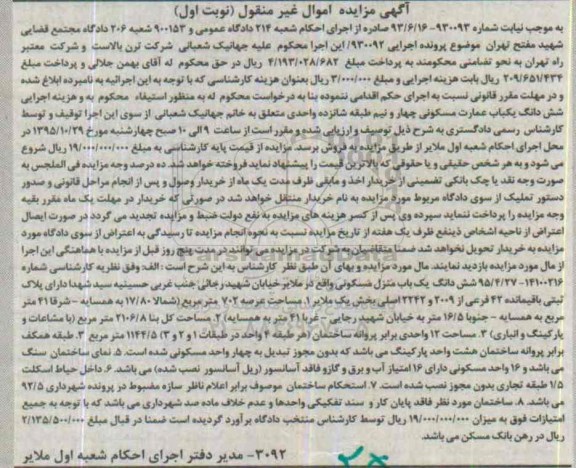 آگهی مزایده اموال غیر منقول (نوبت اول)
به موجب نیابت شماره ۹۳۰۰۹۳-۹۳/۶/۱۶ صادره از اجرای احکام شعبه ۲۱۴ دادگاه عمومی و ۹۰۰۱۵۳ شعبه ۲۰۶ دادگاه مجتمع قضایی
شهید مفتح تهران موضوع پرونده اجرایی ۹۳۰۰۹۲/ این اجرا محکوم علیه جهانیک شعبانی شرکت ترن بالاست و شرکت معتبر
راه تهران به نحو تضامنی محکومند به پرداخت مبلغ ۴/۱۹۳/۰۲۸/۶۸۲ ریال در حق محکوم له آقای بهمن جلالی و پرداخت مبلغ
۲۰۹/۶۵۱/۴۳۴ ریال بابت هزینه اجرایی و مبلغ ۳/۰۰۰/۰۰۰ ریال بعنوان هزینه کارشناسی که با توجه به این اجرائیه به نامبرده ابلاغ شده
و در مهلت مقرر قانونی نسبت به اجرای حکم اقدامی ننموده بنا به درخواست محکوم له به منظور استیفاء محکوم به و هزینه اجرایی
شش دانگ یکباب عمارت مسکونی چهار و نیم طبقه شانزده واحدی متعلق به خانم جهانیک شعبانی از سوی این اجرا توقیف و توسط
کارشناس رسمی دادگستری به شرح ذیل توصیف و ارزیابی شده و مقرر است از ساعت ۹ الی ۱۰ صبح چهارشنبه مورخ ۱۳۹۵/۱۰/۲۹ در
محل اجرای احکام شعبه اول ملایر از طریق مزایده به فروش برسد. مزایده از قیمت پایه کارشناسی به مبلغ ۱۹/۰۰۰/۰۰۰/۰۰۰ ریال شروع
می شود و به هر شخص حقیقی و یا حقوقی که بالاترین قیمت را پیشنهاد نماید فروخته خواهد شد. ده درصد وجه مزایده فی المجلس به
صورت وجه نقد یا چک بانکی تضمینی از خریدار اخذ و مابقی ظرف مدت یک ماه از خریدار وصول و پس از انجام مراحل قانونی و صدور
دستور تملیک از سوی دادگاه مربوط مورد مزایده به نام خریدار منتقل خواهد شد در صورتی که خریدار در مهلت یک ماه مقرر بقیه
وجه مزایده را پرداخت ننماید سپرده وی پس از کسر هزینه های مزایده به نفع دولت ضبط و مزایده تجدید می گردد در صورت ایصال
اعتراض از ناحیه اشخاص ذینفع ظرف یک هفته از تاریخ مزایده نسبت به نحوه انجام مزایده تا رسیدگی به اعتراض از سوی دادگاه مورد
مزایده به خریدار تحویل نخواهد شد ضمنا متقاضیان به شرکت در مزایده می توانند در مدت پنج روز قبل از مزایده با هماهنگی این اجرا
از مال مورد مزایده بازدید نمایند. مال مورد مزایده و بهای آن طبق نظر کارشناس به این شرح است : الف: وفق نظریه کارشناسی شماره
۱۴۱۰۰۲۱۶-۹۵/۴/۲۷ شش دانگ یک باب منزل مسکونی واقع در ملایر خیابان شهید رجائی جنب غربی حسینیه سید شهدا دارای پلاک
ثبتی باقیمانده ۴۲ فرعی از ۲۰۰۹ و ۲۲۴۲ اصلی بخش یک ملایر ۱. مساحت عرصه ۷۰۲ متر مربع (شمالا ۱۷/۸۰ به همسایه - شرقا ۴۱ متر
مربع به همسایه - جنوبا ۱۶/۵ متر به خیابان شهید رجایی - غربا ۴۱ متر به همسایه) ۲. مساحت کل بنا ۲۱۰۶/۸ متر مربع (با مشاعات و
پارکینگ و انباری) ۳. مساحت ۱۲ واحدی برابر پروانه ساختمان (هر طبقه ۴ واحد در طبقات ۱ و ۲ و ۳) ۱۱۴۴/۵ متر مربع ۴. طبقه همکف
برابر پروانه ساختمان هشت واحد پارکینگ می باشد که بدون مجوز تبدیل به چهار واحد مسکونی شده است. ۵. نمای ساختمان سنگ
می باشد و ۱۶ واحد مسکونی دارای ۱۶ امتیاز آب و برق و گاز و فاقد آسانسور (ریل آسانسور نصب شده) می باشد. ۶. داخل حیاط اسکلت
۱/۵ طبقه تجاری بدون مجوز نصب شده است. ۷. استحکام ساختمان موصوف برابر اعلام ناظر سازه مضبوط در پرونده شهرداری ۹۲/۵
می باشد. ۸. ساختمان مورد نظر فاقد پایان کار و سند تفکیکی واحدها و عدم خلاف ماده صد شهرداری می باشد که با توجه به جمیع
امتیازات فوق به میزان ۱۹/۰۰۰/۰۰۰/۰۰۰ ریال توسط کارشناس منتخب دادگاه برآورد گردیده است ضمنا در قبال مبلغ ۲/۱۳۵/۵۰۰/۰۰۰
ریال در رهن بانک مسکن می باشد.
۳۰۹۲- مدیر دفتر اجرای احکام شعبه اول ملایر